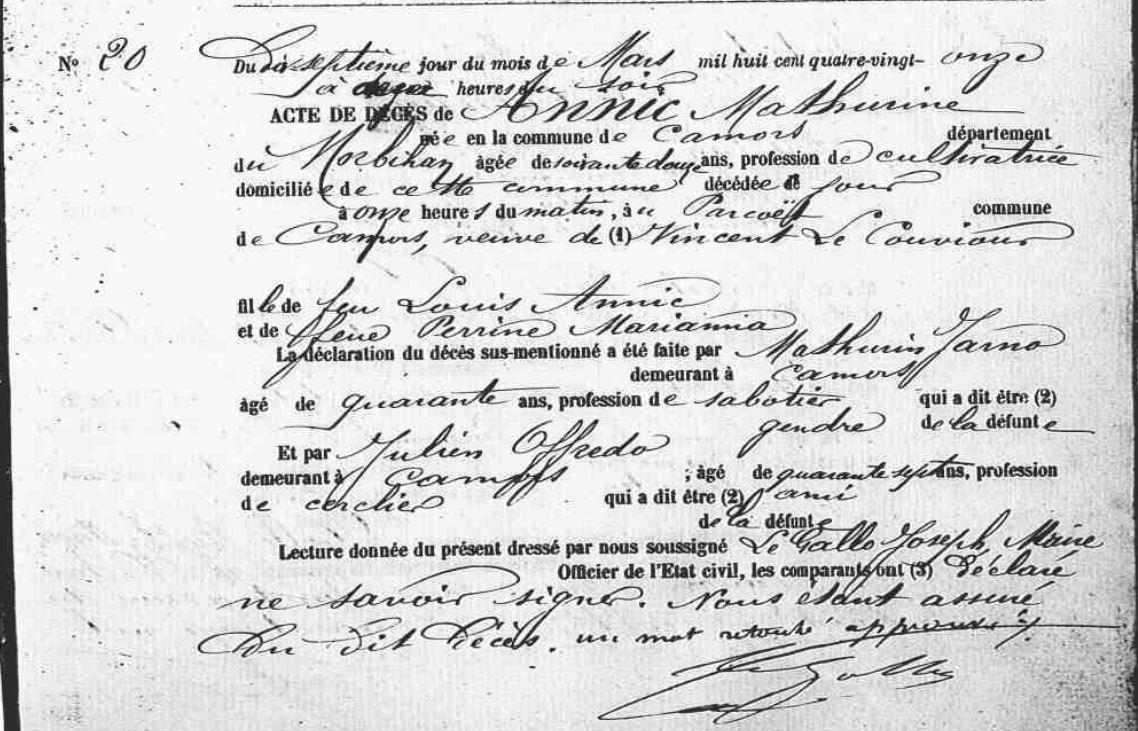 N° 20
Du dix-septième jour du mois de Mars mil huit cent quatre-vingt- onze
à heures du soir
ACTE DE DÉCÈS de Annic Mathurine
née en la commune de Camors département
du Morbihan âgée de soixante douze ans, profession de cultivatrice
domiciliée de cette commune décédée ce jour
à onze heures du matin, au Parcoët commune
de Camors, veuve de (1) Vincent Le Couviour
fille de feu Louis Annic
et de feue Perrine Marianna
La déclaration du décès sus-mentionné a été faite par Mathurin Jarno
demeurant à Camors
âgé de quarante ans, profession de sabotier qui a dit être (2)
gendre de la défunte
Et par Julien Offredo
demeurant à Camors ; âgé de quarante sept ans, profession
de cerclier qui a dit être (2) ami
de la défunte
Lecture donnée du présent dressé par nous soussigné Le Gallo Joseph, Maire
Officier de l'Etat civil, les comparants ont (3) déclaré
ne savoir signer. Nous étant assuré
du dit décès. un mot retouché approuvé
Le Gallo